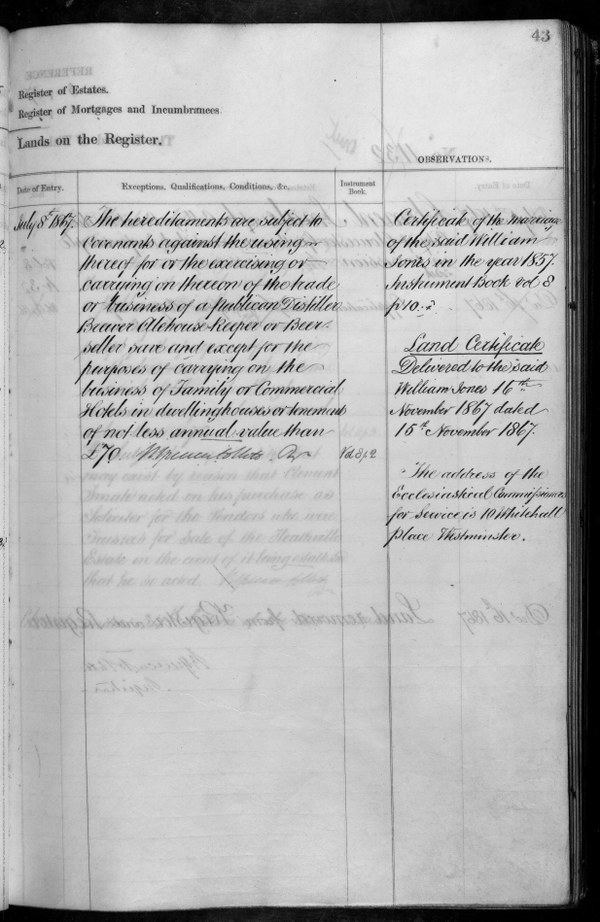 43
Register of Estates.
Register of Mortgages and Incumbrances
Lands on the Register.
OBSERVATIONS.
Date of Entry.
Exceptions, Qualifications, Conditions, &c.
Instrument
Book.
July 8th 1867.
The hereditaments are subject to
Covenants against the using
thereof for or the exercising or
carrying on thereon of the trade
or business of a Publican Distiller
Beaver Alehouse Keeper or Beer
seller save and except for the
purposes of carrying on the
business of Family or Commercial
Hotels in dwellinghouses or tenements
of not less annual value than
£70.
Vol 8 p 2
Certificate of the marriage
of the said William
Jones in the year 1857.
Instrument Book vol 8
p 40.
Land Certificate
Delivered to the said
William Jones 16th
November 1867 dated
15th November 1867.
The address of the
Ecclesiastical Commissioners
for Service is 10 Whitehall
place Westminster.